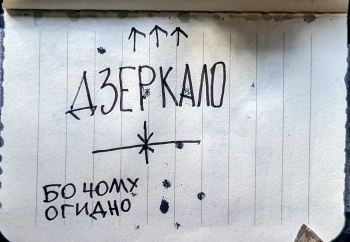 ДЗЕРКАЛО
БО ЧОМУ
ОГИДНО